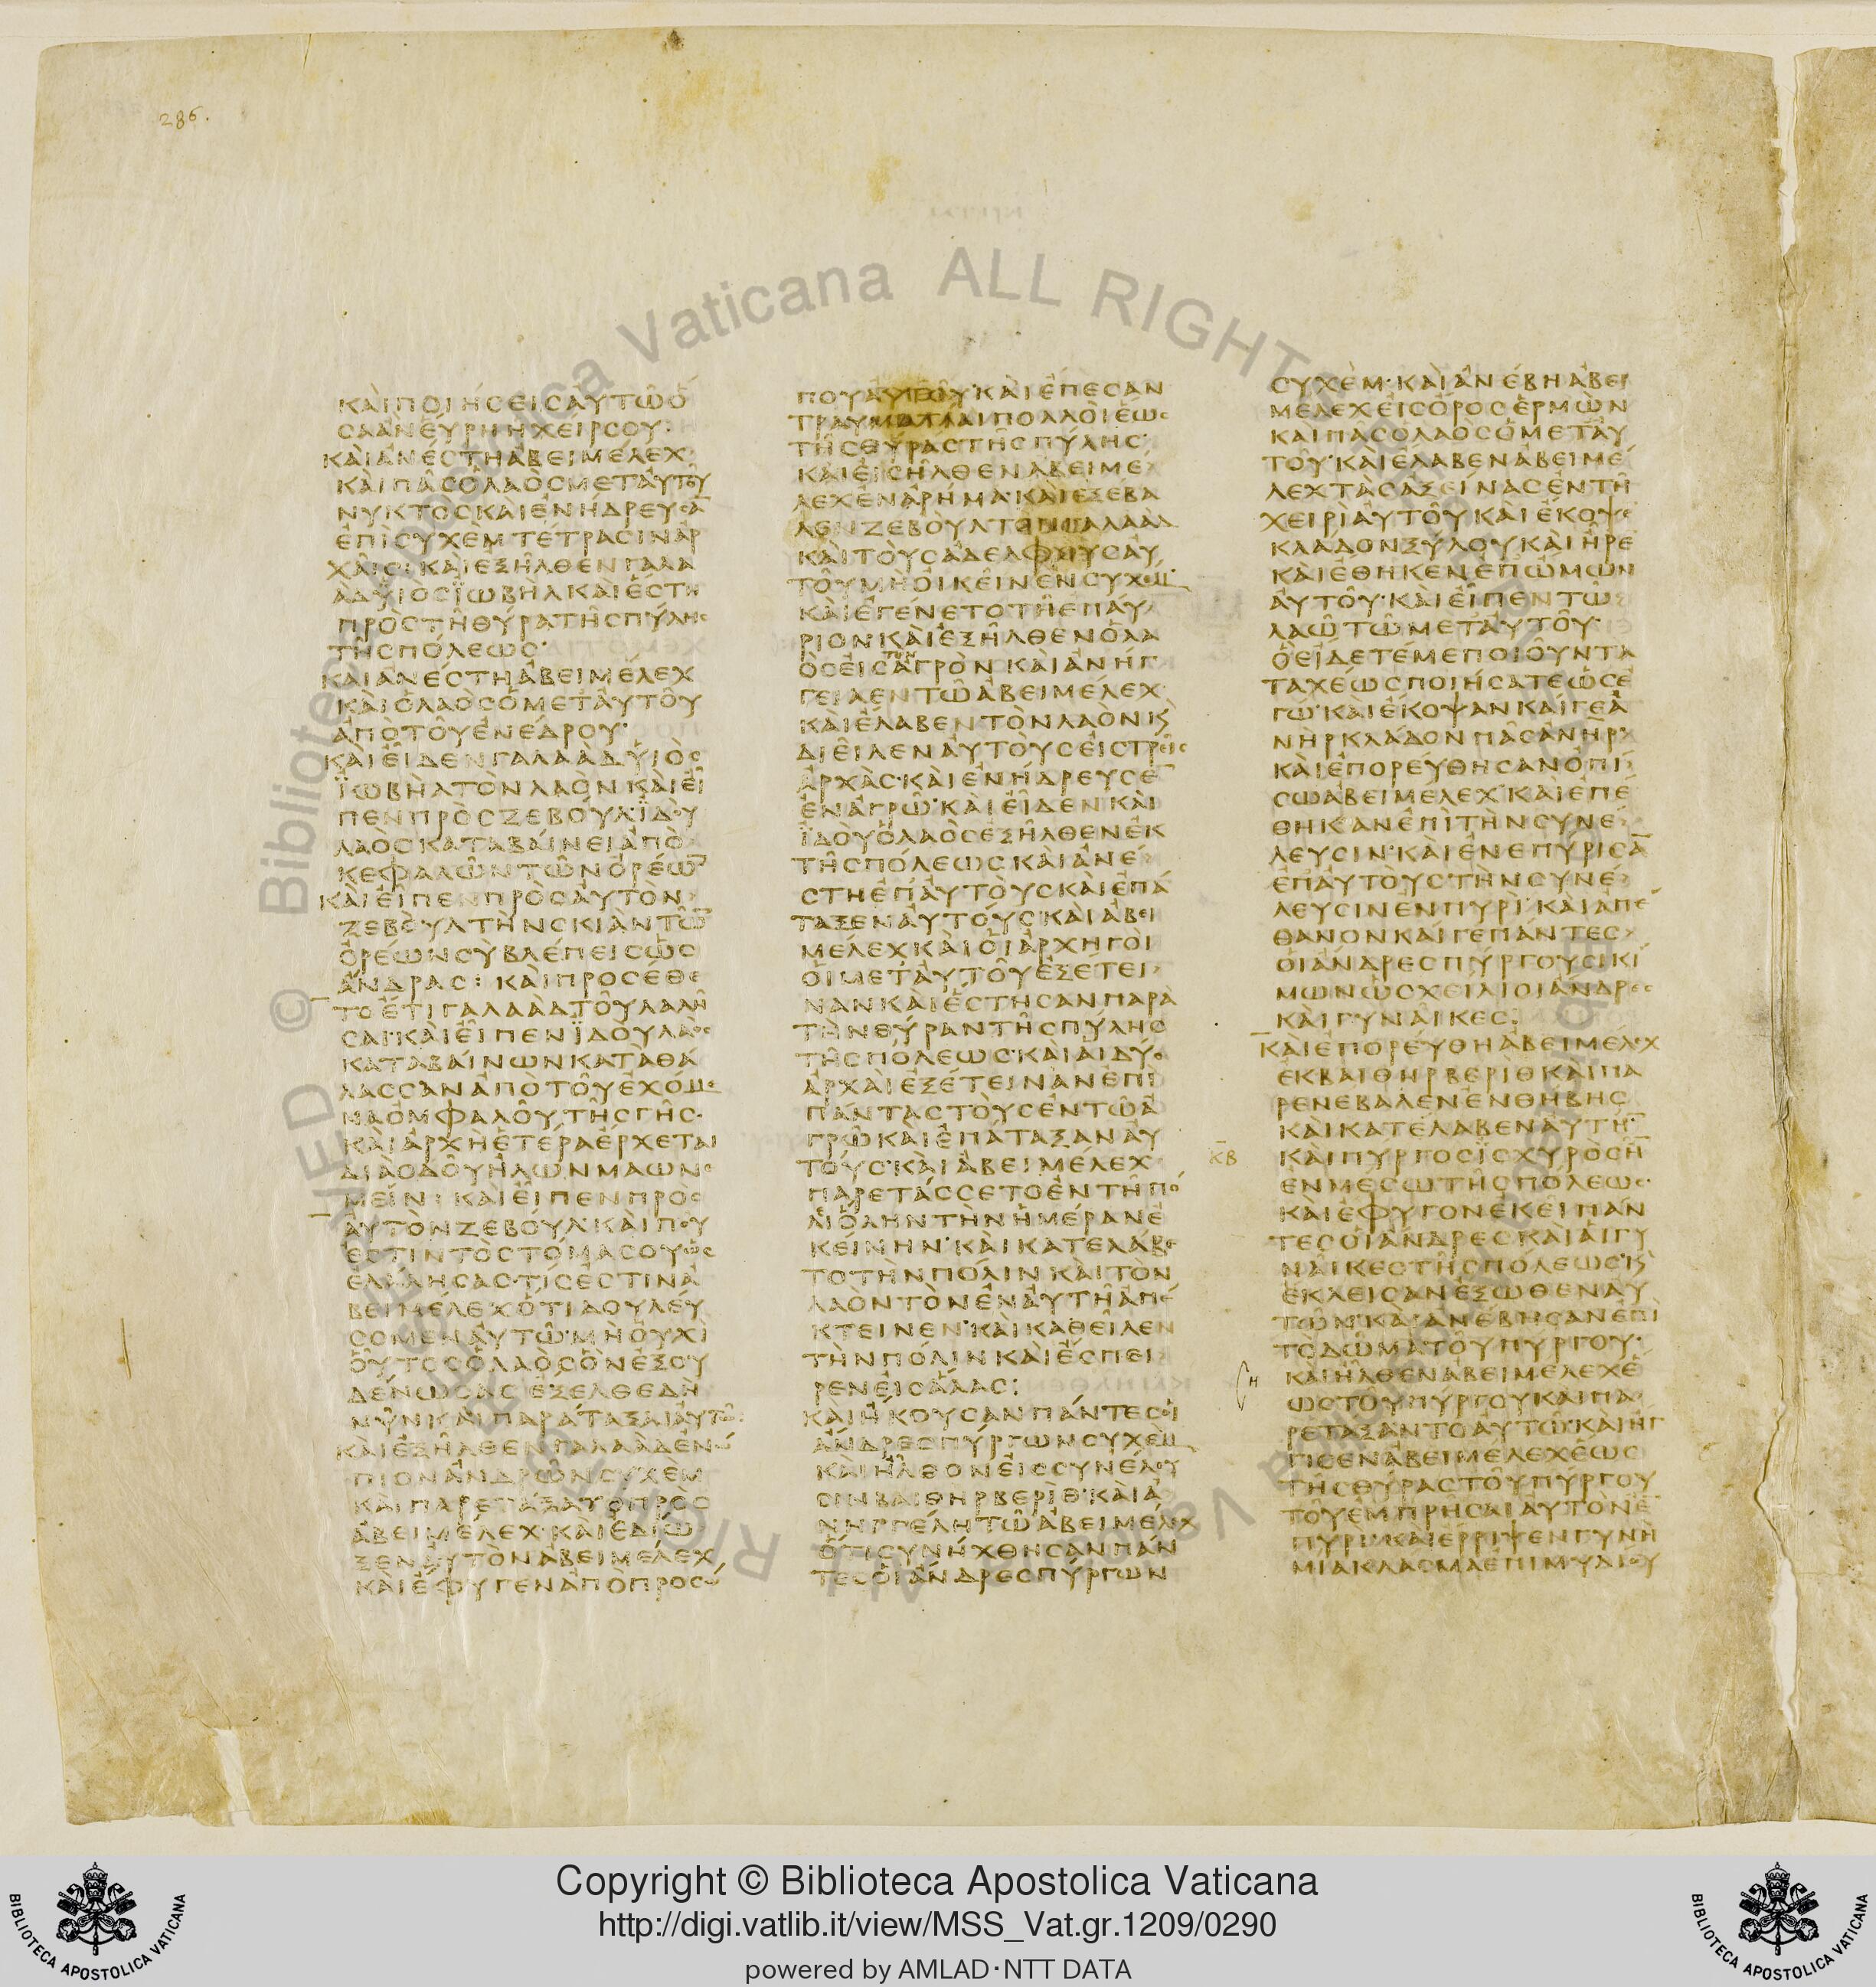 286.
ΚΑΙΠΟΙΗϹΕΙϹΑΥΤΩΟ
ϹΑΑΝΕΥΡΗΗΧΕΙΡϹΟΥ·
ΚΑΙΑΝΕϹΤΗΑΒΕΙΜΕΛΕΧ
ΚΑΙΠΑϹΟΛΑΟϹΜΕΤΑΥΤΟΥ
ΝΥΚΤΟϹΚΑΙΕΝΗΔΡΕΥϹΑ̅
ΕΠΙϹΥΧΕΜΤΕΤΡΑϹΙΝΑΡ
ΧΑΙϹ: ΚΑΙΕΞΗΛΘΕΝΓΑΛΑ
ΑΔΥΙΟϹΪΩΒΗΛΚΑΙΕϹΤΗ
ΠΡΟϹΤΗΘΥΡΑΤΗϹΠΥΛΗϹ
ΤΗϹΠΟΛΕΩϹ·
ΚΑΙΑΝΕϹΤΗΑΒΕΙΜΕΛΕΧ
ΚΑΙΟΛΑΟϹΟΜΕΤΑΥΤΟΥ
ΑΠΟΤΟΥΕΝΕΔΡΟΥ·
ΚΑΙΕΙΔΕΝΓΑΛΑΑΔΥΙΟϹ
ΪΩΒΗΛΤΟΝΛΑΟΝΚΑΙΕΙ
ΠΕΝΠΡΟϹΖΕΒΟΥΛ·ΪΔΟΥ
ΛΑΟϹΚΑΤΑΒΑΙΝΕΙΑΠΟ
ΚΕΦΑΛΩΝΤΩΝΟΡΕΩ̅
ΚΑΙΕΙΠΕΝΠΡΟϹΑΥΤΟΝ
ΖΕΒΟΥΛΤΗΝϹΚΙΑΝΤΩ̅
ΟΡΕΩΝϹΥΒΛΕΠΕΙϹΩϹ
ΑΝΔΡΑϹ: ΚΑΙΠΡΟϹΕΘΕ
ΤΟΕΤΙΓΑΛΑΑΔΤΟΥΛΑΛΗ
ϹΑΙ·ΚΑΙΕΙΠΕΝΪΔΟΥΛΑΟϹ
ΚΑΤΑΒΑΙΝΩΝΚΑΤΑΘΑ
ΛΑϹϹΑΝΑΠΟΤΟΥΕΧΟΜΕ
ΝΑΟΜΦΑΛΟΥΤΗϹΓΗϹ·
ΚΑΙΑΡΧΗΕΤΕΡΑΕΡΧΕΤΑΙ
ΔΙΑΟΔΟΥΗΛΩΝΜΑΩΝΕ
ΜΕΙΝ: ΚΑΙΕΙΠΕΝΠΡΟϹ
ΑΥΤΟΝΖΕΒΟΥΛ·ΚΑΙΠΟΥ
ΕϹΤΙΝΤΟϹΤΟΜΑϹΟΥΩϹ
ΕΛΑΛΗϹΑϹ·ΤΙϹΕϹΤΙΝΑ
ΒΕΙΜΕΛΕΧΟΤΙΔΟΥΛΕΥ
ϹΟΜΕΝΑΥΤΩ·ΜΗΟΥΧΙ
ΟΥΤΟϹΟΛΑΟϹΟΝΕΞΟΥ
ΔΕΝΩϹΑϹ ΕΞΕΛΘΕΔΗ
ΝΥΝΚΑΙΠΑΡΑΤΑΞΑΙΑΥΤΩ·
ΚΑΙΕΞΗΛΘΕΝΓΑΛΑΑΔΕΝΩ
ΠΙΟΝΑΝΔΡΩΝϹΥΧΕΜ
ΚΑΙΠΑΡΕΤΑΞΑΤΟΠΡΟϹ
ΑΒΕΙΜΕΛΕΧ·ΚΑΙΕΔΙΩ
ΞΕΝΑΥΤΟΝΑΒΕΙΜΕΛΕΧ
ΚΑΙΕΦΥΓΕΝΑΠΟΠΡΟϹΩ
ΠΟΥΑΥΤΟΥ·ΚΑΙΕΠΕϹΑΝ
ΤΡΑΥΜΑΤΙΑΙΠΟΛΛΟΙΕΩϹ
ΤΗϹΘΥΡΑϹΤΗϹΠΥΛΗϹ·
ΚΑΙΕΙϹΗΛΘΕΝΑΒΕΙΜΕ
ΛΕΧΕΝΑΡΗΜΑ·ΚΑΙΕΞΕΒΑ
ΛΕΝΖΕΒΟΥΛΤΟΝΓΑΛΑΑΔ
ΚΑΙΤΟΥϹΑΔΕΛΦΟΥϹΑΥ
ΤΟΥΜΗΟΙΚΕΙΝΕΝϹΥΧΕΜ
ΚΑΙΕΓΕΝΕΤΟΤΗΕΠΑΥ
ΡΙΟΝΚΑΙΕΞΗΛΘΕΝΟΛΑ
ΟϹΕΙϹΤΟΝΑΓΡΟΝ ΚΑΙΑΝΗΓ
ΓΕΙΛΕΝΤΩΑΒΕΙΜΕΛΕΧ·
ΚΑΙΕΛΑΒΕΝΤΟΝΛΑΟΝϏ
ΔΙΕΙΛΕΝΑΥΤΟΥϹΕΙϹΤΡΕΙϹ
ΑΡΧΑϹ·ΚΑΙΕΝΗΔΡΕΥϹΕ̅
ΕΝΑΓΡΩ·ΚΑΙΕΙΔΕΝΚΑΙ
ΪΔΟΥΟΛΑΟϹΕΞΗΛΘΕΝΕΚ
ΤΗϹΠΟΛΕΩϹΚΑΙΑΝΕ
ϹΤΗΕΠΑΥΤΟΥϹΚΑΙΕΠΑ
ΤΑΞΕΝΑΥΤΟΥϹ·ΚΑΙΑΒΕΙ
ΜΕΛΕΧΚΑΙΟΙΑΡΧΗΓΟΙ
ΟΙΜΕΤΑΥΤΟΥΕΞΕΤΕΙ
ΝΑΝΚΑΙΕϹΤΗϹΑΝΠΑΡΑ
ΤΗΝΘΥΡΑΝΤΗϹΠΥΛΗϹ
ΤΗϹΠΟΛΕΩϹ·ΚΑΙΑΙΔΥΟ
ΑΡΧΑΙΕΞΕΤΕΙΝΑΝΕΠΙ
ΠΑΝΤΑϹΤΟΥϹΕΝΤΩΑ
ΓΡΩΚΑΙΕΠΑΤΑΞΑΝΑΥ
ΤΟΥϹ·ΚΑΙΑΒΕΙΜΕΛΕΧ
ΠΑΡΕΤΑϹϹΕΤΟΕΝΤΗΠΟ
ΛΙΟΛΗΝΤΗΝΗΜΕΡΑΝΕ
ΚΕΙΝΗΝ·ΚΑΙΚΑΤΕΛΑΒΕ
ΤΟΤΗΝΠΟΛΙΝΚΑΙΤΟΝ
ΛΑΟΝΤΟΝΕΝΑΥΤΗΑΠΕ
ΚΤΕΙΝΕΝ·ΚΑΙΚΑΘΕΙΛΕΝ
ΤΗΝΠΟΛΙΝΚΑΙΕϹΠΕΙ
ΡΕΝΕΙϹΑΛΑϹ:
ΚΑΙΗΚΟΥϹΑΝΠΑΝΤΕϹΟΙ
ΑΝΔΡΕϹΠΥΡΓΩΝϹΥΧΕΜ
ΚΑΙΗΛΘΟΝΕΙϹϹΥΝΕΛΕΥ
ϹΙΝΒΑΙΘΗΡΒΕΡΙΘ·ΚΑΙΑ
ΝΗΓΓΕΛΗΤΩΑΒΕΙΜΕΛΕΧ
ΟΤΙϹΥΝΗΧΘΗϹΑΝΠΑΝ
ΤΕϹΟΙΑΝΔΡΕϹΠΥΡΓΩΝ
ϹΥΧΕΜ·ΚΑΙΑΝΕΒΗΑΒΕΙ
ΜΕΛΕΧΕΙϹΟΡΟϹΕΡΜΩΝ
ΚΑΙΠΑϹΟΛΑΟϹΟΜΕΤΑΥ
ΤΟΥ·ΚΑΙΕΛΑΒΕΝΑΒΕΙΜΕ
ΛΕΧΤΑϹΑΞΕΙΝΑϹΕΝΤΗ
ΧΕΙΡΙΑΥΤΟΥΚΑΙΕΚΟΨΕ
ΚΛΑΔΟΝΞΥΛΟΥΚΑΙΗΡΕ
ΚΑΙΕΘΗΚΕΝΕΠΩΜΩΝ
ΑΥΤΟΥ·ΚΑΙΕΙΠΕΝΤΩ
ΛΑΩΤΩΜΕΤΑΥΤΟΥ·
ΟΕΙΔΕΤΕΜΕΠΟΙΟΥΝΤΑ
ΤΑΧΕΩϹΠΟΙΗϹΑΤΕΩϹΕ
ΓΩ·ΚΑΙΕΚΟΨΑΝΚΑΙΓΕΑ
ΝΗΡΚΛΑΔΟΝΠΑϹΑΝΗΡ
ΚΑΙΕΠΟΡΕΥΘΗϹΑΝΟΠΙ
ϹΩΑΒΕΙΜΕΛΕΧ·ΚΑΙΕΠΕ
ΘΗΚΑΝΕΠΙΤΗΝϹΥΝΕ
ΛΕΥϹΙΝ·ΚΑΙΕΝΕΠΥΡΙϹΑ̅
ΕΠΑΥΤΟΥϹΤΗΝϹΥΝΕ
ΛΕΥϹΙΝΕΝΠΥΡΙ·ΚΑΙΑΠΕ
ΘΑΝΟΝΚΑΙΓΕΠΑΝΤΕϹ
ΟΙΑΝΔΡΕϹΠΥΡΓΟΥϹΙΚΙ
ΜΩΝΩϹΧΕΙΛΙΟΙΑΝΔΡΕϹ
ΚΑΙΓΥΝΑΙΚΕϹ:
ΚΑΙΕΠΟΡΕΥΘΗΑΒΕΙΜΕΛΕΧ
ΕΚΒΑΙΘΗΡΒΕΡΙΘΚΑΙΠΑ
ΡΕΝΕΒΑΛΕΝΕΝΘΗΒΗϹ
ΚΑΙΚΑΤΕΛΑΒΕΝΑΥΤΗ̅
ΚΒ
ΚΑΙΠΥΡΓΟϹΪϹΧΥΡΟϹΗ̅
ΕΝΜΕϹΩΤΗϹΠΟΛΕΩϹ·
ΚΑΙΕΦΥΓΟΝΕΚΕΙΠΑΝ
ΤΕϹΟΙΑΝΔΡΕϹΚΑΙΑΙΓΥ
ΝΑΙΚΕϹΤΗϹΠΟΛΕΩϹ·Ϗ
ΕΚΛΕΙϹΑΝΕΞΩΘΕΝΑΥ
ΤΩΝ·ΚΑΙΑΝΕΒΗϹΑΝΕΠΙ
ΤΟΔΩΜΑΤΟΥΠΥΡΓΟΥ·
ΚΑΙΗΛΘΕΝΑΒΕΙΜΕΛΕΧΕ
ΩϹΤΟΥΠΥΡΓΟΥΚΑΙΠΑ
ΡΕΤΑΞΑΝΤΟΑΥΤΩ·ΚΑΙΗΓ
ΓΙϹΕΝΑΒΕΙΜΕΛΕΧΕΩϹ
ΤΗϹΘΥΡΑϹΤΟΥΠΥΡΓΟΥ
ΤΟΥΕΜΠΡΗϹΑΙΑΥΤΟΝΕ̅
ΠΥΡΙ·ΚΑΙΕΡΡΙΨΕΝΓΥΝΗ
ΜΙΑΚΛΑϹΜΑΕΠΙΜΥΛΙΟΥ
© Biblioteca Apostolica Vaticana ALL RIGHTS RESERVED
BIBLIOTECA APOSTOLICA VATICANA
Copyright © Biblioteca Apostolica Vaticana
http://digi.vatlib.it/view/MSS_Vat.gr.1209/0290
powered by AMLAD·NTT DATA
BIBLIOTECA APOSTOLICA VATICANA